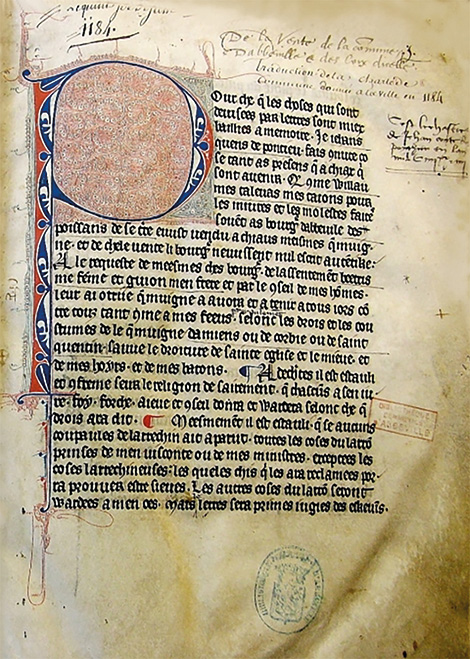 1184.
De la Vente de la commune
d'abbeville et des Loix d'icelle.
traduction de la chartre de
Commune donnée a la ville en 1184
Our che q̄ les choses qui sont
deuisees par lettres sont miex
tailliés a memoire. Je iehans
quens de pontieu. fais sauoir
se tant as presens q̄ a chiax q̄
sont auenir. Q̄ 9me Willau
mes taleuas mes taions pour
les iniures et les molestes faite
souent as bourg dabbeuile des
poissans de se tere euist uendu a chiaus meismes q̄muig
ne. et de chele uente li bourg neuuissent nul escrit autētike.
A le requeste de meesmes ches bourg. de lassentemēt beetris
me feme et guion men frere et par le 9seil de mes homes.
leur ai otrïe q̄muigne a auoir et a tenir a tous iors cō
tre tous tant 9me a mes feeus. selonc les drois et les cou
stumes de le q̄muigne damiens ou de corbie ou de saint
quentin. sauue le droiture de sainte eglise et le mieue. et
de mes hoyrs. et de mes barons. A dechertes il est estauli
et 9ferme seur le religion de sairement. q̄ chascūs a sen iu
re. foy. forche. aieue et 9seil donra et wardera selonc che q̄
drois ara dit. Meesmemēt il est estauli. q̄ se aucuns
coupaules de larrechin aic aparut. toutes les coses du larrō
prinses de men uisconte ou de mes ministres. exceptees les
coses larrechineuses. les queles chis q̄ les ara reclamees por
ra prouuer estre sieues. Les autres coses du larrō seront
wardees a men oes. Mais lerres sera primes iugies des eskeuīs.
ABBEVILLE